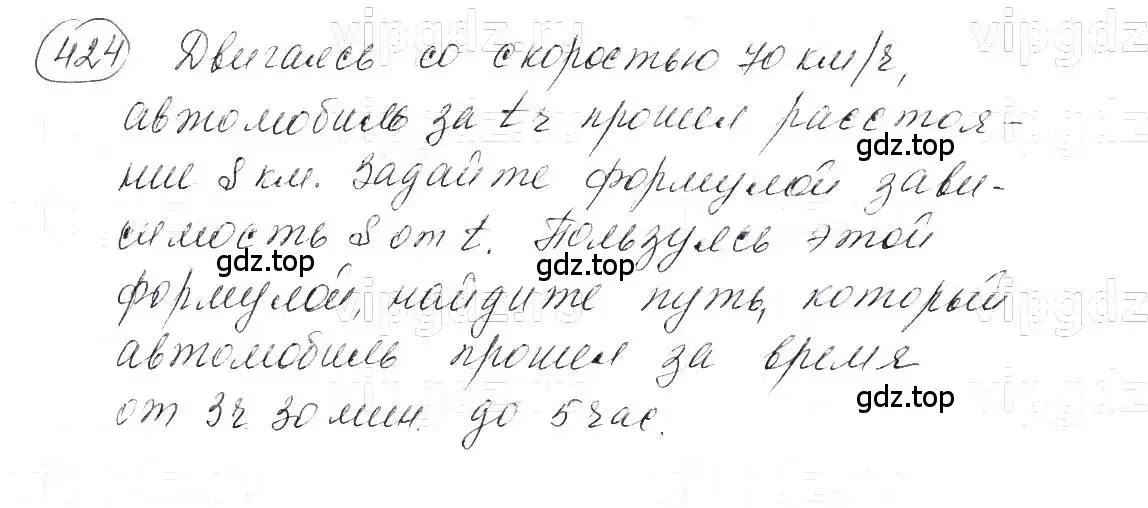 424 Двигаясь со скоростью 70 км/ч,
автомобиль за t ч прошел расстоя-
ние S км. Задайте формулой зави-
симость S от t. Пользуясь этой
формулой, найдите путь, который
автомобиль прошел за время
от 3ч 30 мин. до 5 час.
gdz.top
gdz.top
gdz.top
gdz.top